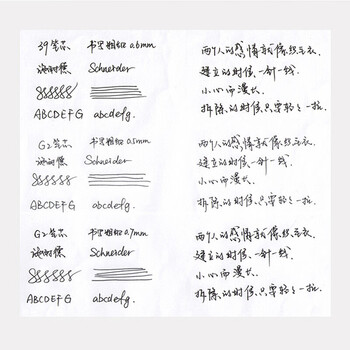 39笔芯 书写粗细 0.6mm 两个人的感情就像织毛衣,
施耐德 Schneider 建立的时候,一针一线,
SSSSSS 小心而漫长.
ABCDEFG abcdefg. 拆除的时候,只需轻々一拉.
G2笔芯 书写粗细 0.5mm 两个人的感情就像织毛衣,
施耐德 Schneider 建立的时候,一针一线,
SSSSSSS 小心而漫长.
ABCDEFG abcdefg. 拆除的时候,只需轻々一拉.
G2笔芯 书写粗细 0.7mm 两个人的感情就像织毛衣,
施耐德 Schneider 建立的时候,一针一线,
SSSSSSS 小心而漫长.
ABCDEFG abcdefg. 拆除的时候,只需轻々一拉.